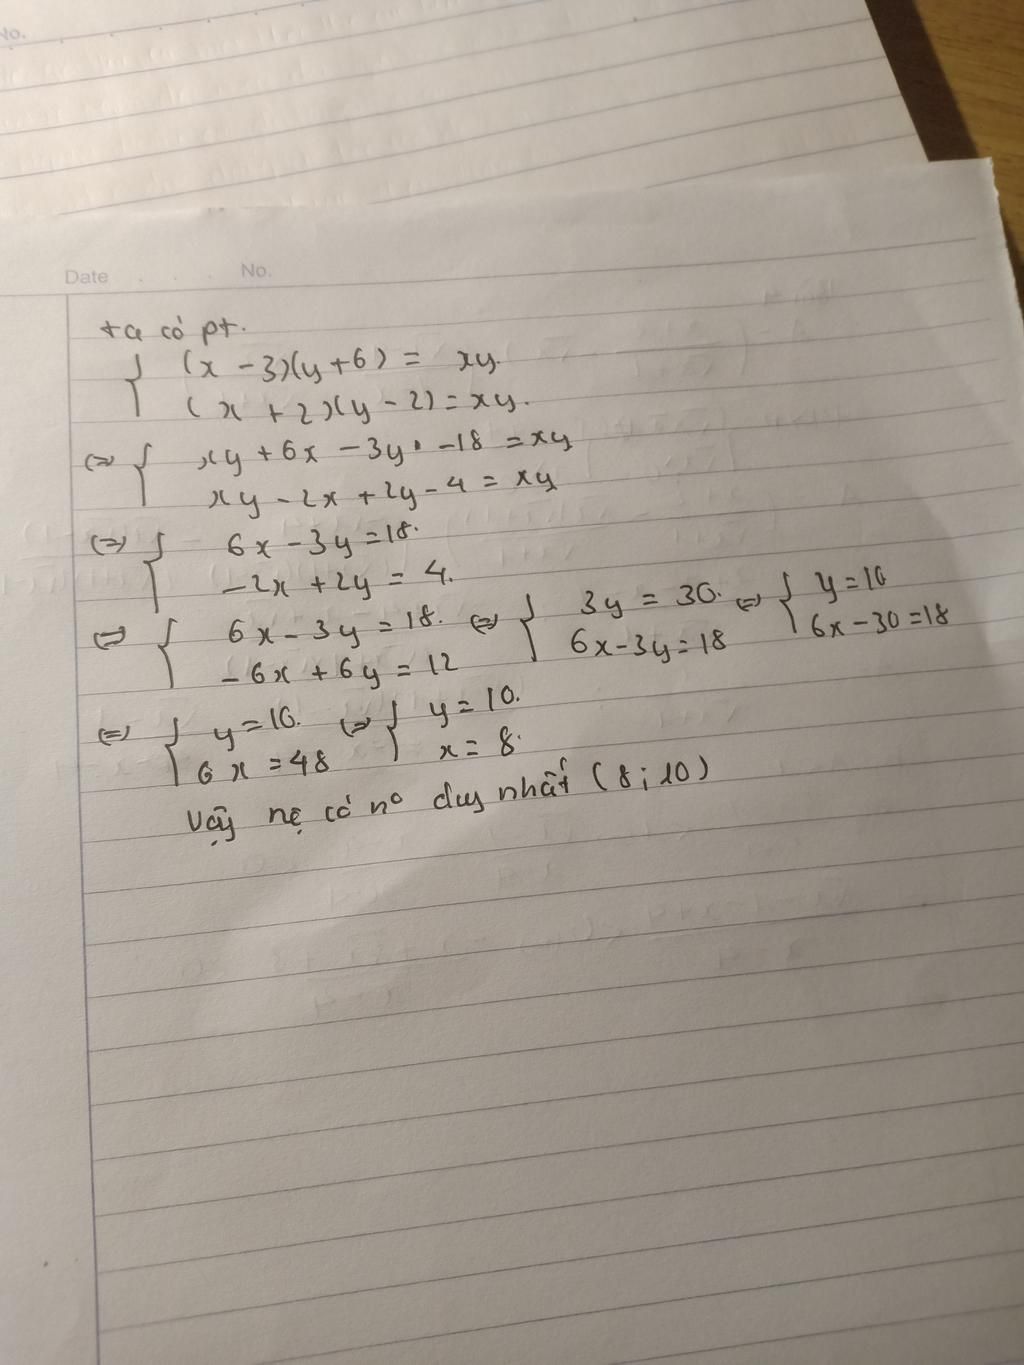 No.
Date No.
ta có pt.
{ (x - 3)(y + 6) = xy.
(x + 2)(y - 2) = xy.
<=> { xy + 6x - 3y - 18 = xy
xy - 2x + 2y - 4 = xy
<=> { 6x - 3y = 18.
-2x + 2y = 4.
<=> { 6x - 3y = 18. <=> { 3y = 30. <=> { y = 10
-6x + 6y = 12 6x - 3y = 18 6x - 30 = 18
<=> { y = 10. <=> { y = 10.
6x = 48 x = 8.
Vậy hệ có no duy nhất (8; 10)